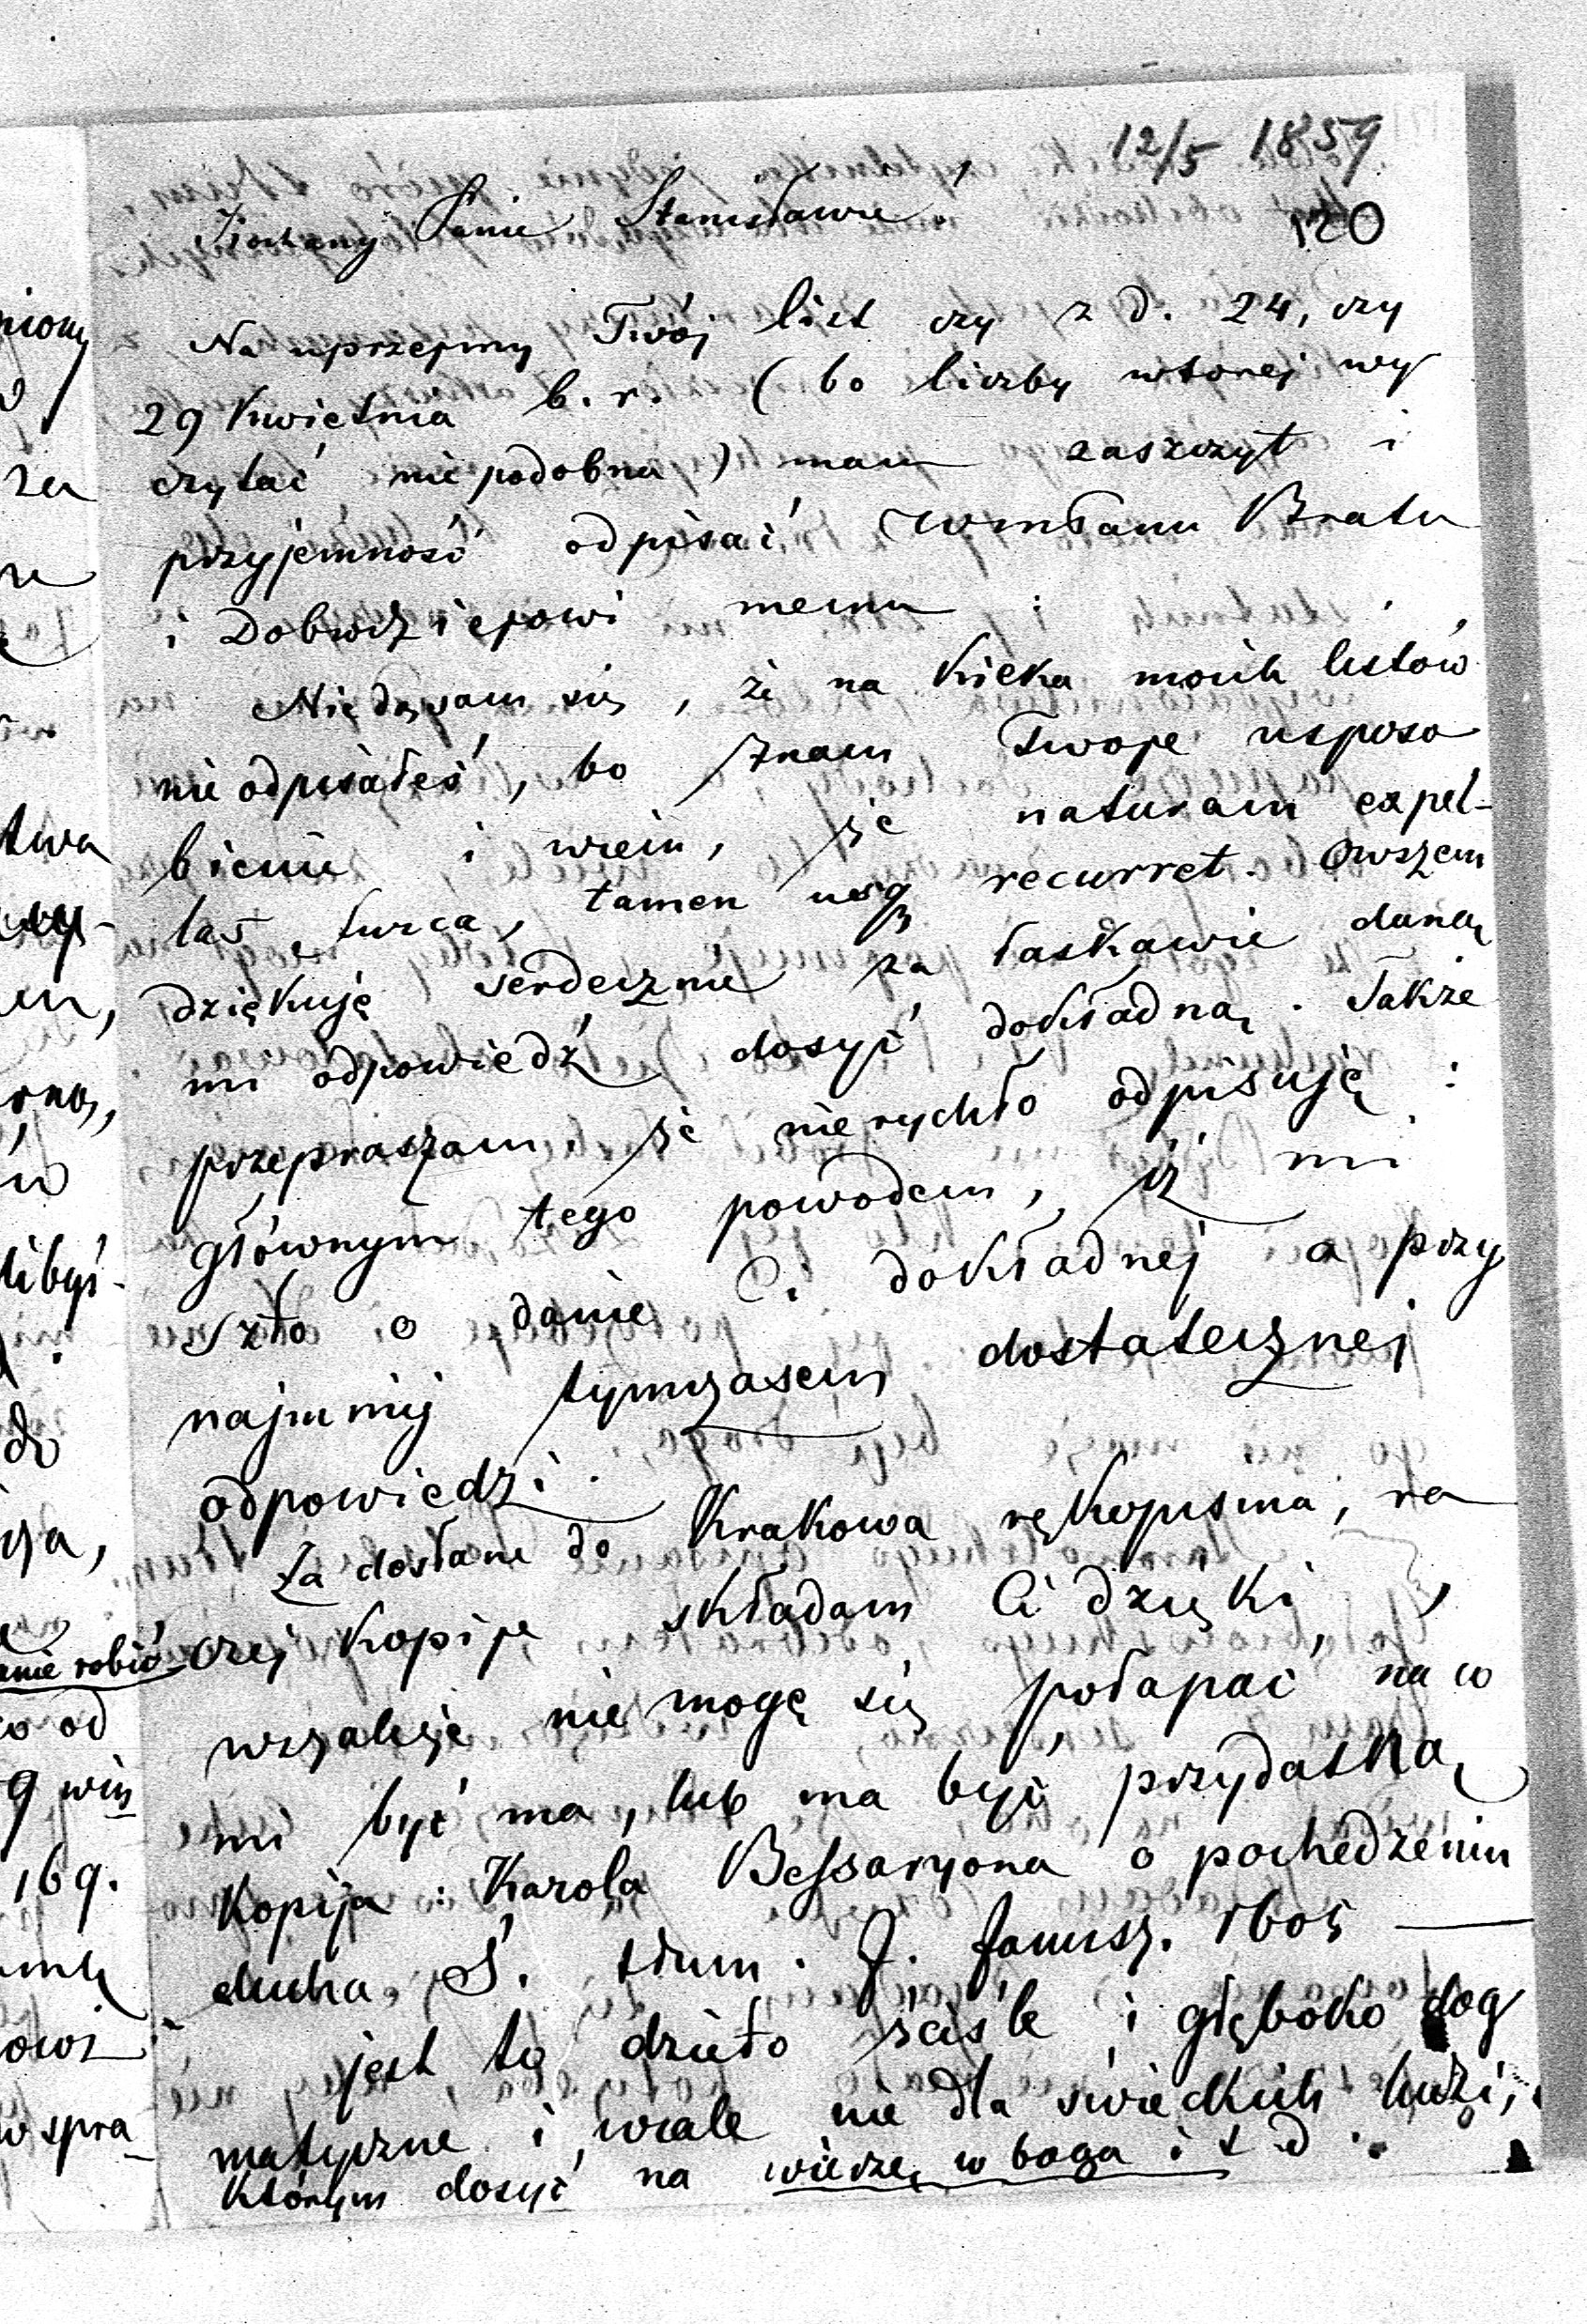 12/5 1859
120
Kochany Panie Stanisławie!
Na uprzejmy Twój list czy z d. 24, czy
29 Kwietnia b. r. (bo liczby wtorej wy
czytać nie podobna) mam zaszczyt i
przyjemność odpisać Bratu
i Dobrodziejowi memu:
Nie dziwam się, że na kilka moich listów
nie odpisałeś, bo znam Twoje usposo
bienie i wiem, że naturam expel-
las furca, tamen usq recurret. Owszem
dziękuję serdecznie za łaskawie daną
mi odpowiedź dosyć dokładną. Także
przepraszam, że nierychło odpisuję:
głównym tego powodem, iż mi
szło o danie Ci dokładnej a przy
najmniej tymczasem dostatecznej
odpowiedzi.
Za dosłane do Krakowa rękopisma, ra
czej kopije składam Ci dzięki,
wszakże nie mogę się połapać na co
mi być ma, lub ma być przydatną
kopija: Karola Bessaryona o pochodzeniu
ducha Ś. tłum. J. Janusz. 1605 —
jest to dzieło ściśle i głęboko dog
matyczne i wcale nie dla świeckich ludzi,
którym dosyć na wierzę w boga i t. d.
piony
za
twa
wy-
rną,
libyś-
do
anie robić
co od
9 wiń
169.
w spra